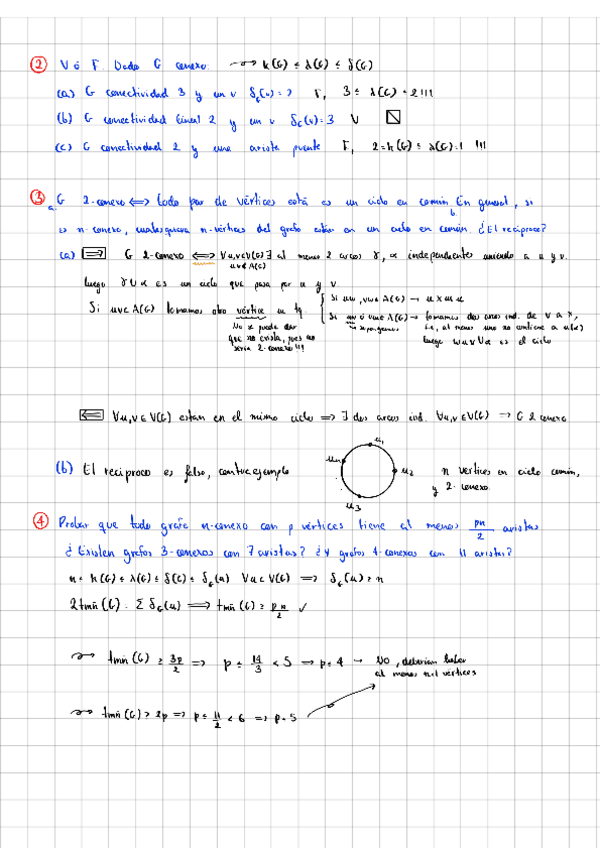 ② V ó F. Dado G conexo. ⟿ k(G) ≤ λ(G) ≤ δ(G)
(a) G conectividad 3 y un v δ_G(v)=2 F, 3 ≤ λ(G) ≤ 2 !!!
(b) G conectividad lineal 2 y un v δ_G(v)=3 V
(c) G conectividad 2 y una arista puente F, 2=k(G) ≤ λ(G)=1 !!!
③ a. G 2-conexo ⟺ todo par de vértices está en un ciclo en común. b. En general, si
es n-conexo, cualesquiera n-vértices del grafo están en un ciclo en común. ¿El recíproco?
(a) ⟹ G 2-conexo ⟺ ∀u,v∈V(G) ∃ al menos 2 arcos γ, α independientes uniendo a u y v.
uv∉A(G)
luego γ∪α es un ciclo que pasa por u y v
Si uv∈A(G) tomamos otro vértice w tq
No se puede dar
que no exista, pues no
sería 2-conexo !!!
Si uw, vw∈A(G) →
Si uw ó vw∉A(G) → tomamos dos arcos ind. de v a
supongamos
al menos uno no contiene a
luego es el ciclo
⟸ ∀u,v∈V(G) están en el mismo ciclo ⟹ ∃ dos arcos ind. ∀u,v∈V(G) → G 2 conexo
(b) El recíproco es falso, contraejemplo
u₁
uₙ
u₂
u₃
n vértices en ciclo común,
y 2-conexo
④ Probar que todo grafo n-conexo con p vértices tiene al menos pn/2 aristas
¿Existen grafos 3-conexos con 7 aristas? ¿Y grafos 4-conexos con 11 aristas?
n = k(G) ≤ λ(G) ≤ δ(G) ≤ δ_G(u) ∀u∈V(G) ⟹ δ_G(u) ≥ n
2tmñ(G) = Σ δ_G(u) ⟹ tmñ(G) ≥ pn/2 ✓
⟿ tmñ(G) ≥ 3p/2 ⟹ p ≤ 14/3 < 5 → p=4 → No, deberían haber
al menos n+1 vértices
⟿ tmñ(G) ≥ 2p ⟹ p ≤ 11/2 < 6 ⟹ p=5